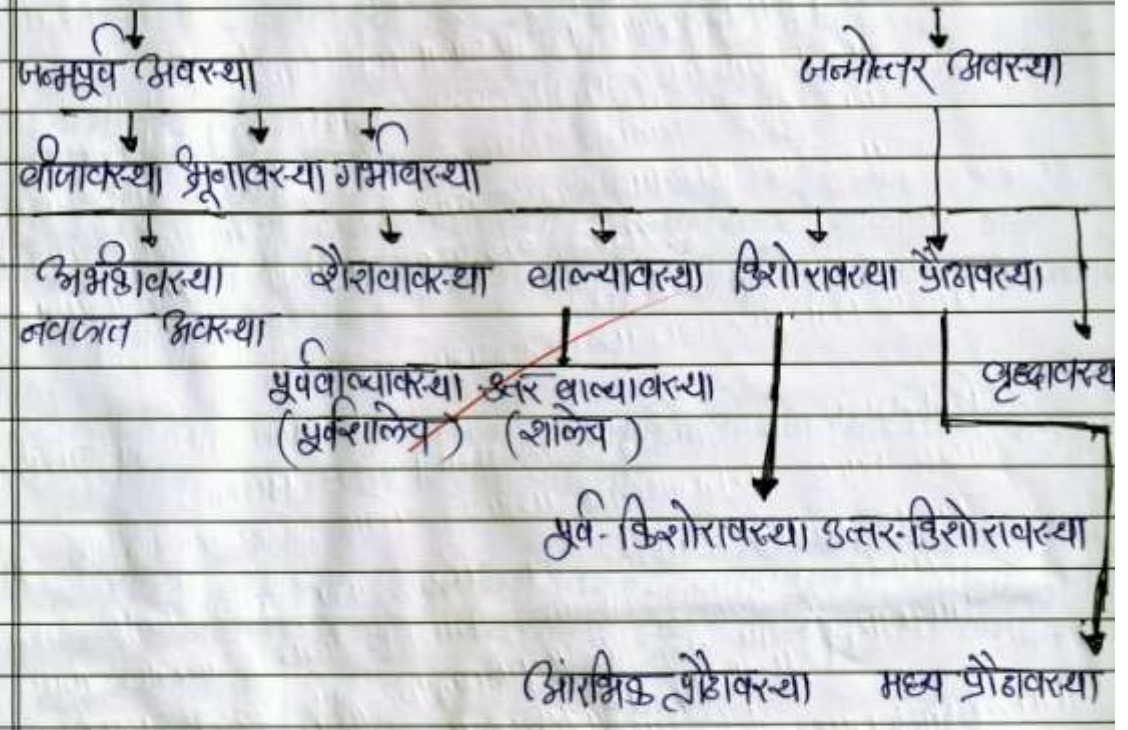 जन्मपूर्व अवस्था जन्मोत्तर अवस्था
बीजावस्था भ्रूणावस्था गर्भावस्था
अर्भकावस्था शैशवावस्था बाल्यावस्था किशोरावस्था प्रौढावस्था
नवजात अवस्था
वृध्दावस्था
पूर्वबाल्यावस्था उत्तर बाल्यावस्था
(पूर्वशालेय) (शालेय)
पूर्व-किशोरावस्था उत्तर-किशोरावस्था
आंरभिक प्रौढावस्था मध्य प्रौढावस्था